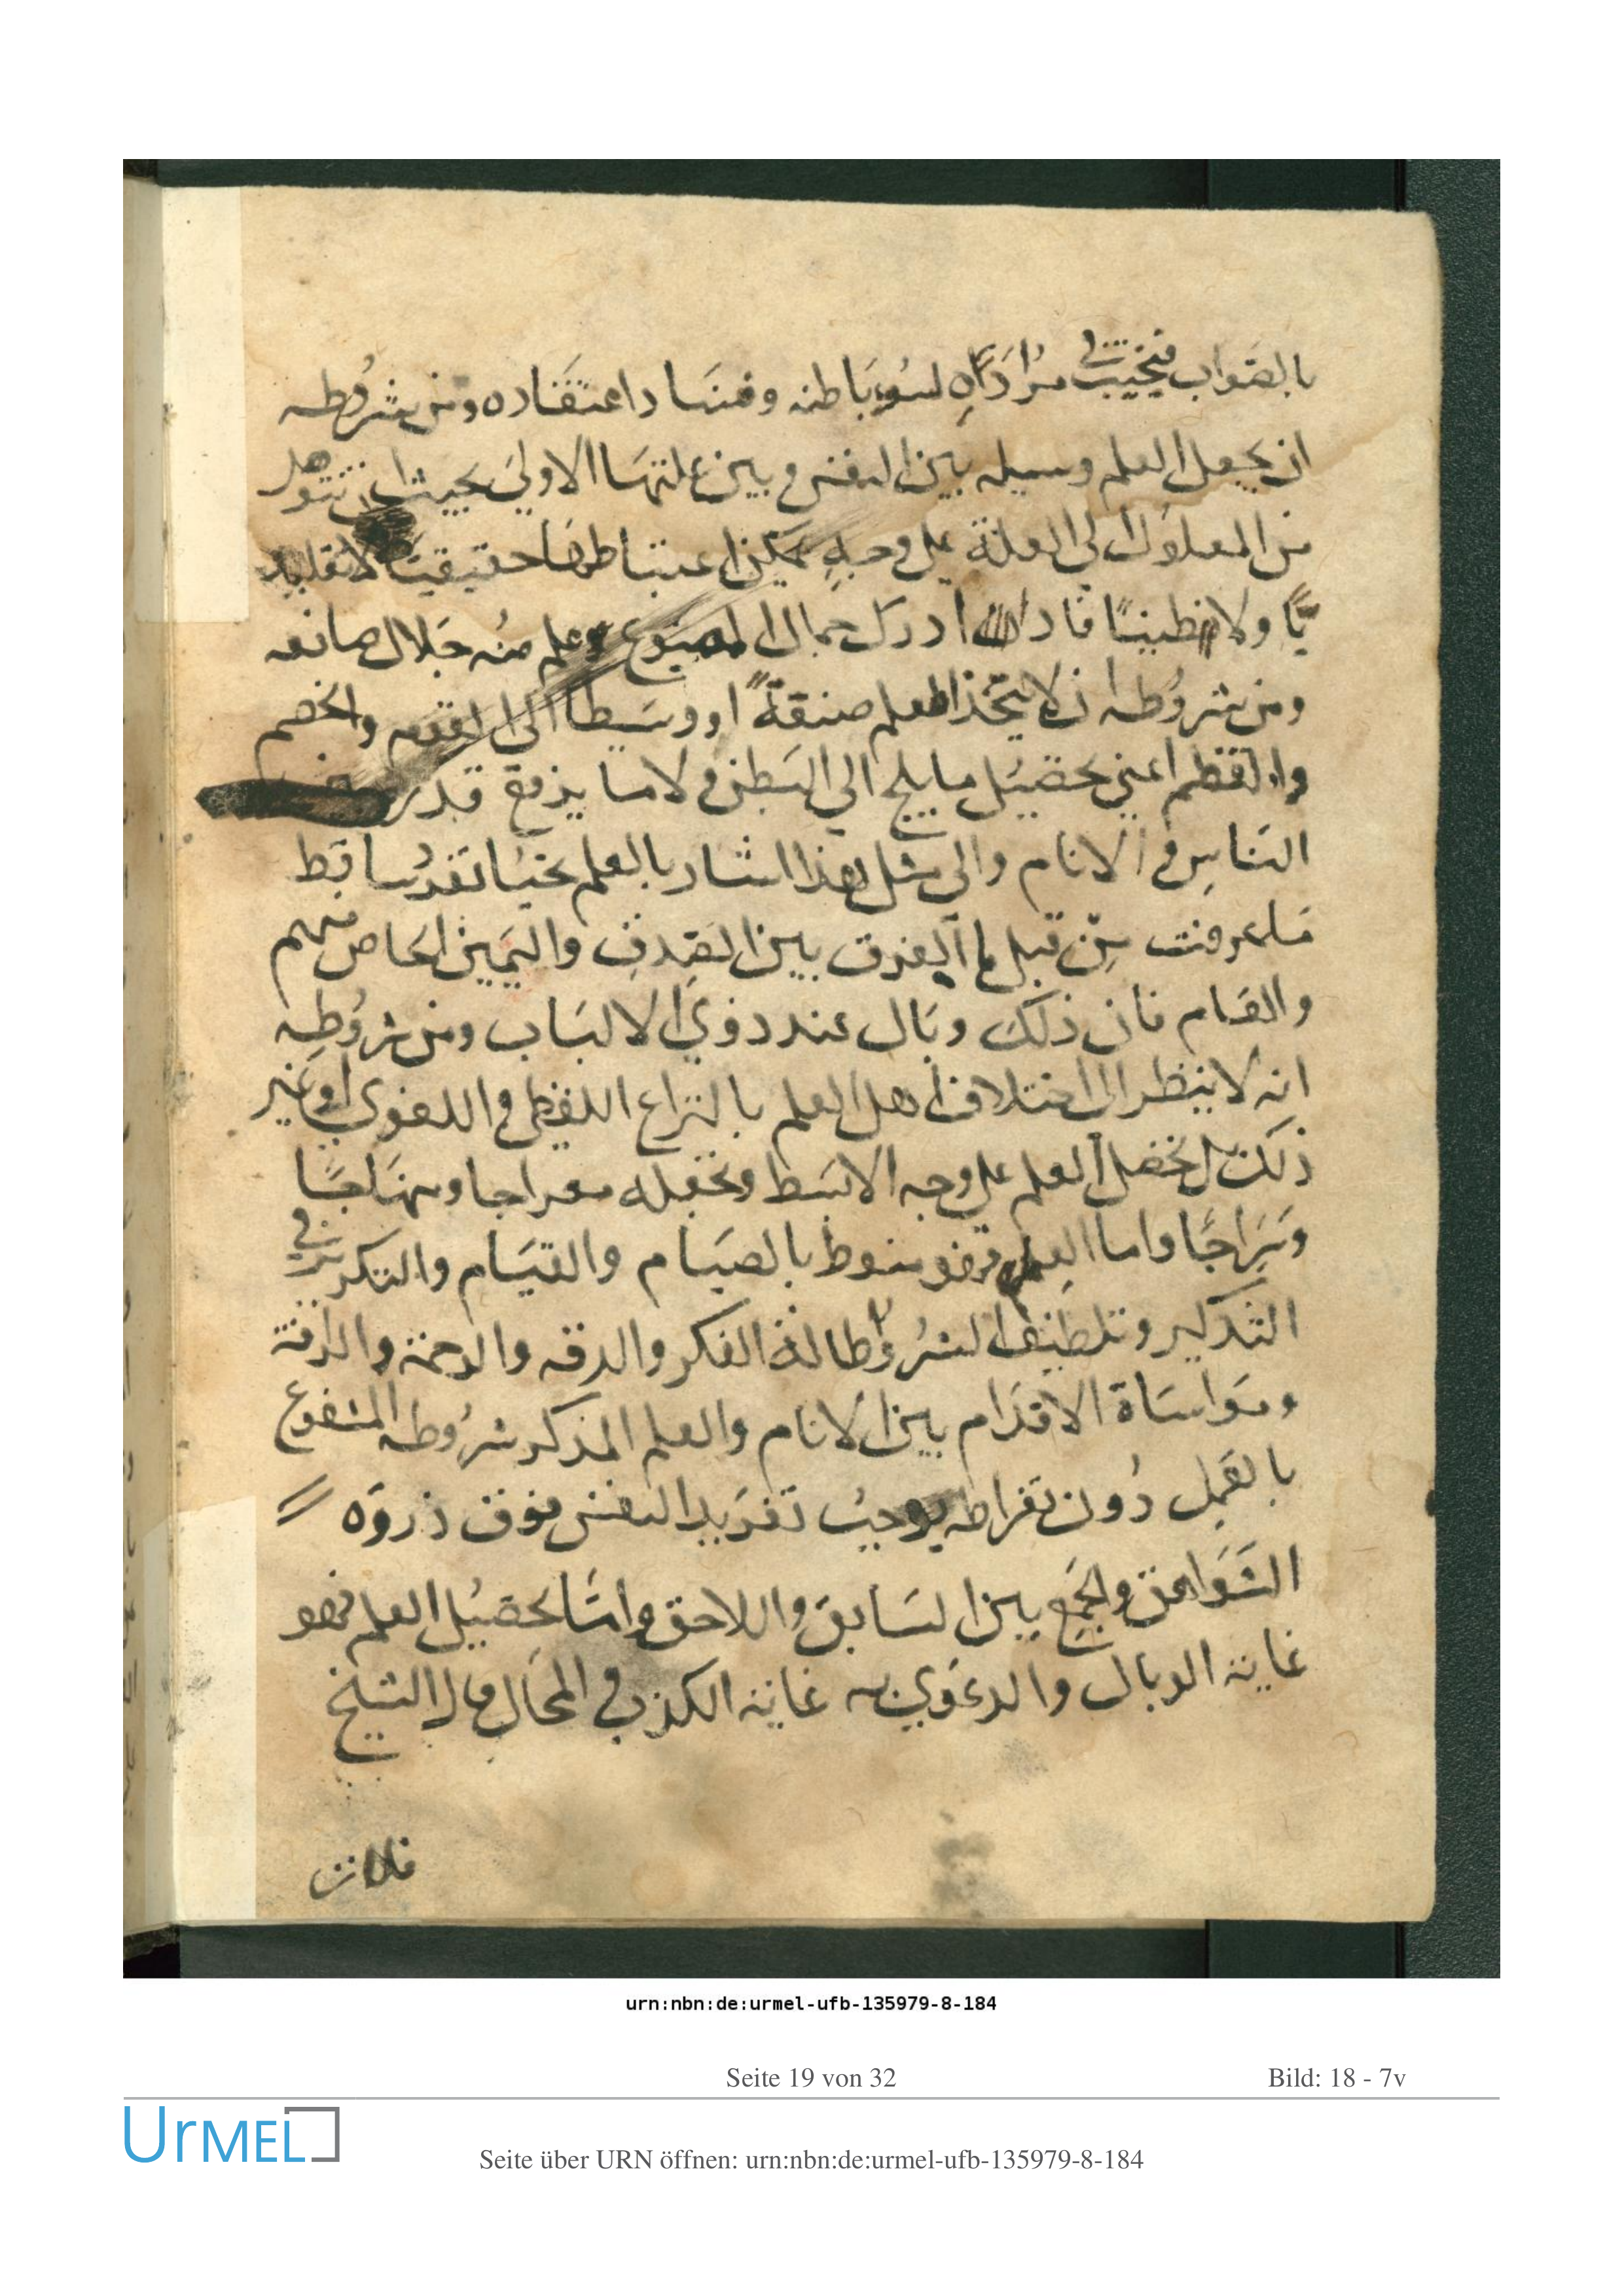 بالصواب فيخيب في مرادآه لسوء باطنه وفساد اعتقاده ومن شروطه
ان يجعل العلم وسيله بين النفس وبين علتها الاولي بحيث ان تتوصل
من المعلول الي العلة علي وجه يمكن اعتباطها حقيقيا لا تقليد
يًا ولا ظنينًا فاذا ادرك جمال المصنوع وعلم منه جلال صانعه
ومن شروطه ان لا يتخذ العلم صنقة او وسيطا الي اللقم والخضم
والقظم اعني تحصيل ما يلج الي البطن ولا ما يرفع قدره
الناس في الانام والي مثل هذا اشار بالعلم
ما عرفت من قبل الفرق بين الصدف والثمين الخاص منهم
والعام فان ذلك وبال عند ذوي الالباب ومن شروطه
انه لا ينظر الي اختلاف اهل العلم بالنزاع اللفظي واللغوي او غير
ذلك بل تحصل العلم علي وجه الابسط وتجعله معراجا ومنهاجا
وسراجًا واما العلم فهو منوط بالصيام والقيام والتكرير في
التذكير وتلطيف السر واطالة الفكر والدقه والرحمة والرافة
ومواساة الاقدام بين الانام والعلم المذكر شروطه المشفوع
بالعمل دون تفراطه يوجب تفريد النفس فوق ذروة
الشواهق والجمع بين السابق واللاحق واما تحصيل العلم فهو
غاية الوبال والدعوي به غاية الكذب في المحال قال الشيخ
فلان
urn:nbn:de:urmel-ufb-135979-8-184
Seite 19 von 32
Bild: 18 - 7v
UrMEL
Seite über URN öffnen: urn:nbn:de:urmel-ufb-135979-8-184